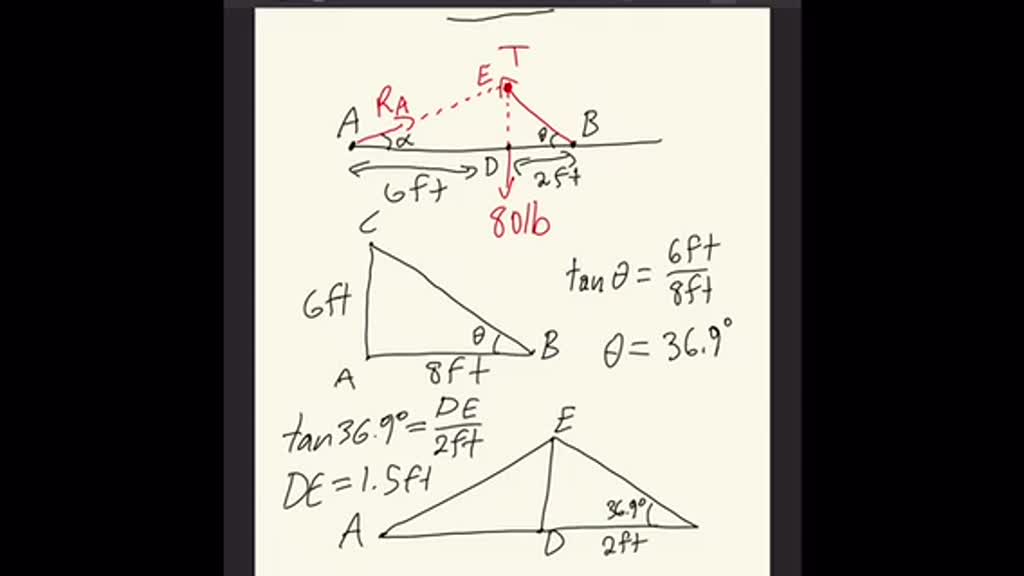 T
E
R_A
A
α
θ
B
6ft
D
2ft
80lb
C
6ft
θ
A
8ft
B
tan θ = 6ft/8ft
θ = 36.9°
tan36.9° = DE/2ft
DE = 1.5ft
E
A
D
36.9°
2ft